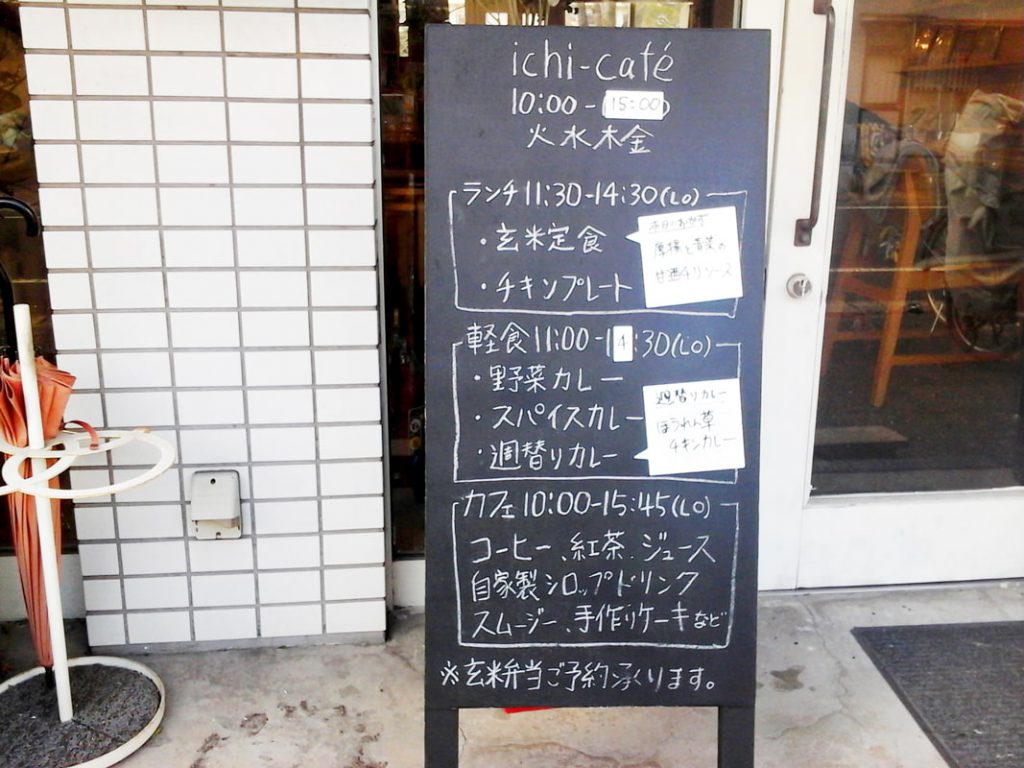 ichi-café
10:00-15:00
火水木金
ランチ 11:30-14:30(LO)
・玄米定食
・チキンプレート
本日のおかず
厚揚と青菜の
甘酒チリソース
軽食 11:00-14:30(LO)
・野菜カレー
・スパイスカレー
・週替りカレー
週替りカレー
ほうれん草
チキンカレー
カフェ 10:00-15:45(LO)
コーヒー、紅茶、ジュース
自家製シロップドリンク
スムージー、手作りケーキなど
※玄米弁当ご予約承ります。